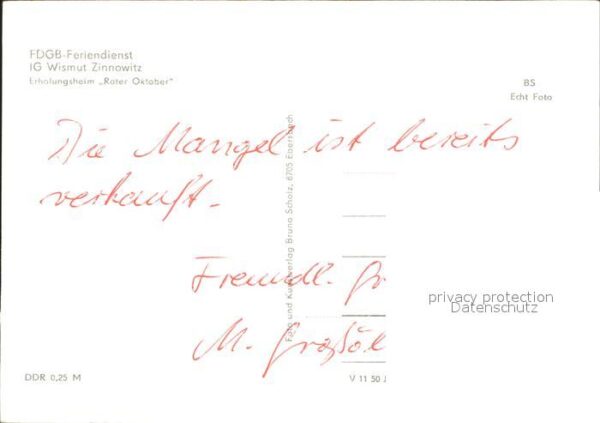 FDGB-Feriendienst
IG Wismut Zinnowitz
Erholungsheim „Roter Oktober"
BS
Echt Foto
Die Mangel ist bereits
verkauft.
Freundl. Gr
M. Großöl
Foto und Kunstverlag Bruno Scholz, 6705 Ebersbach
privacy protection
Datenschutz
DDR 0,25 M
V 11 50 J